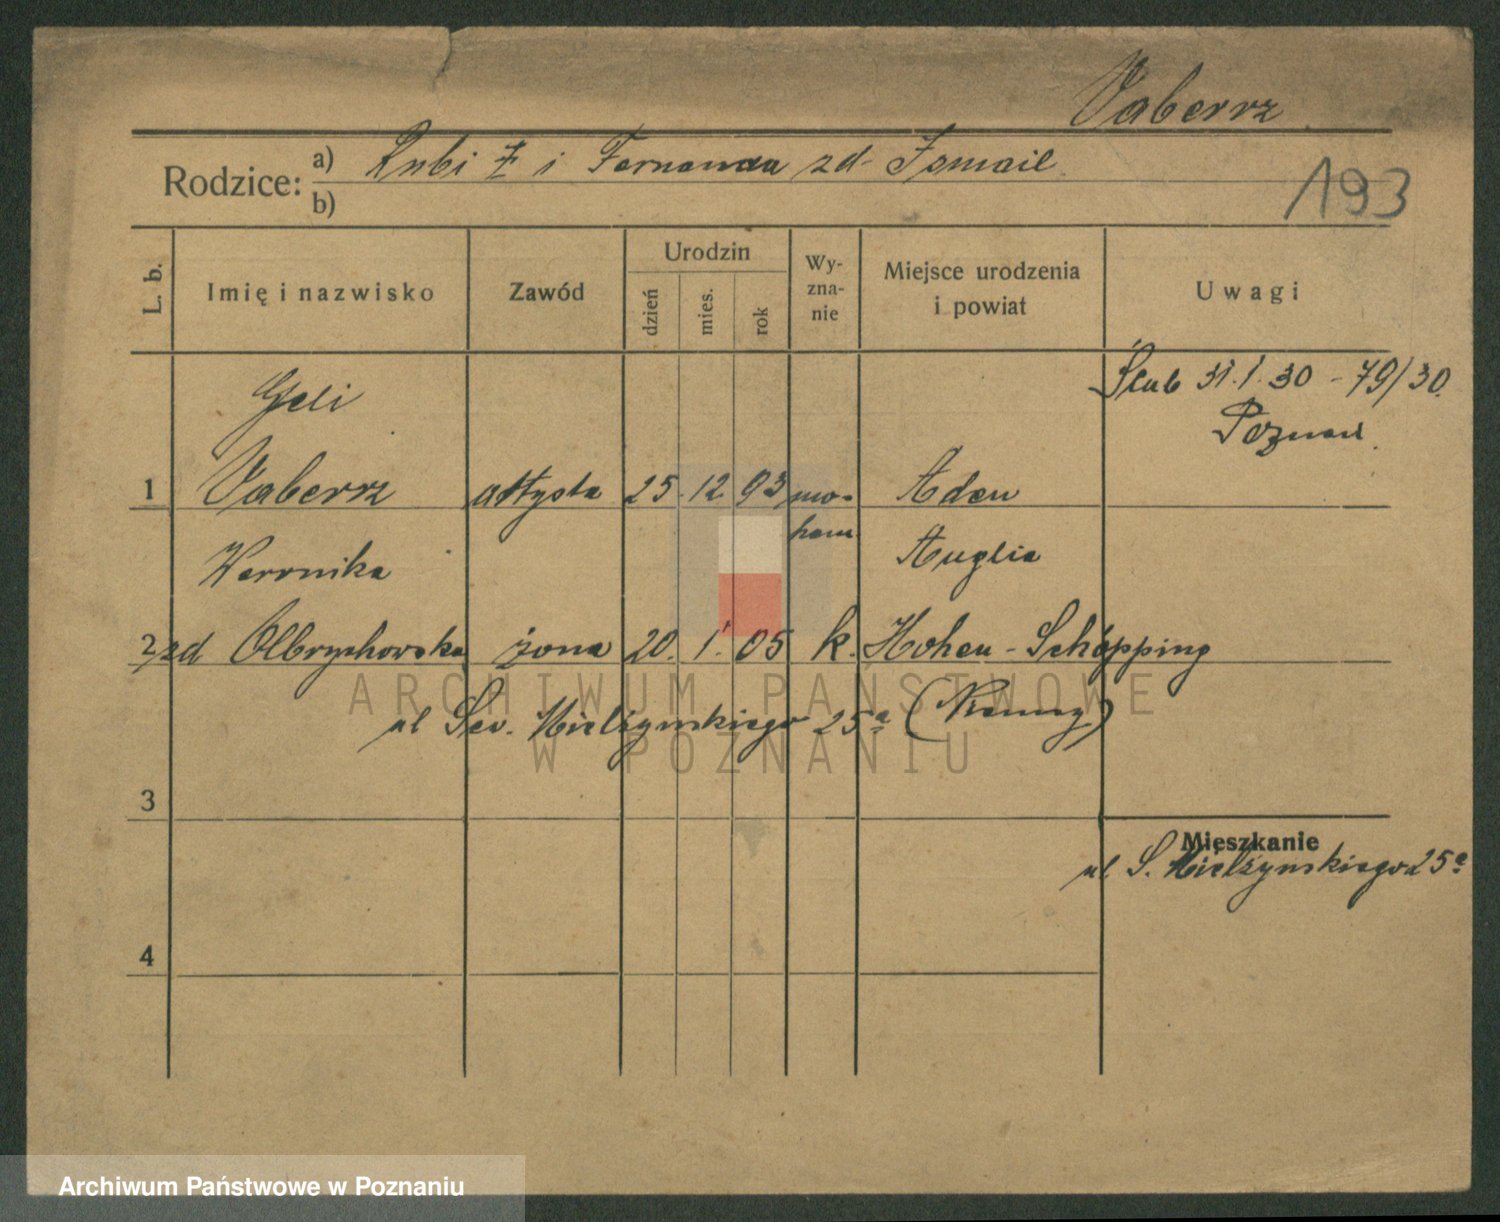 Vaberrz
Rodzice: a) Rubi Ż i Fernanda zd Ismail
b)
193
L. b. Imię i nazwisko Zawód Urodzin dzień mies. rok Wy-zna-nie Miejsce urodzenia i powiat Uwagi
Ślub 31.1.30 - 79/30.
Geli
Poznań.
1 Vaberrz artysta 25. 12 93 mo- Aden
ham. Anglia
Weronika
2 zd Olbrychowska żona 20. 1. 05 k. Hohen-Schöpping
ul Sew. Mielżyńskiego 25a (Niemcy)
3
Mieszkanie
ul S. Mielżyńskiego 25a
4
ARCHIWUM PAŃSTWOWE
W POZNANIU
Archiwum Państwowe w Poznaniu